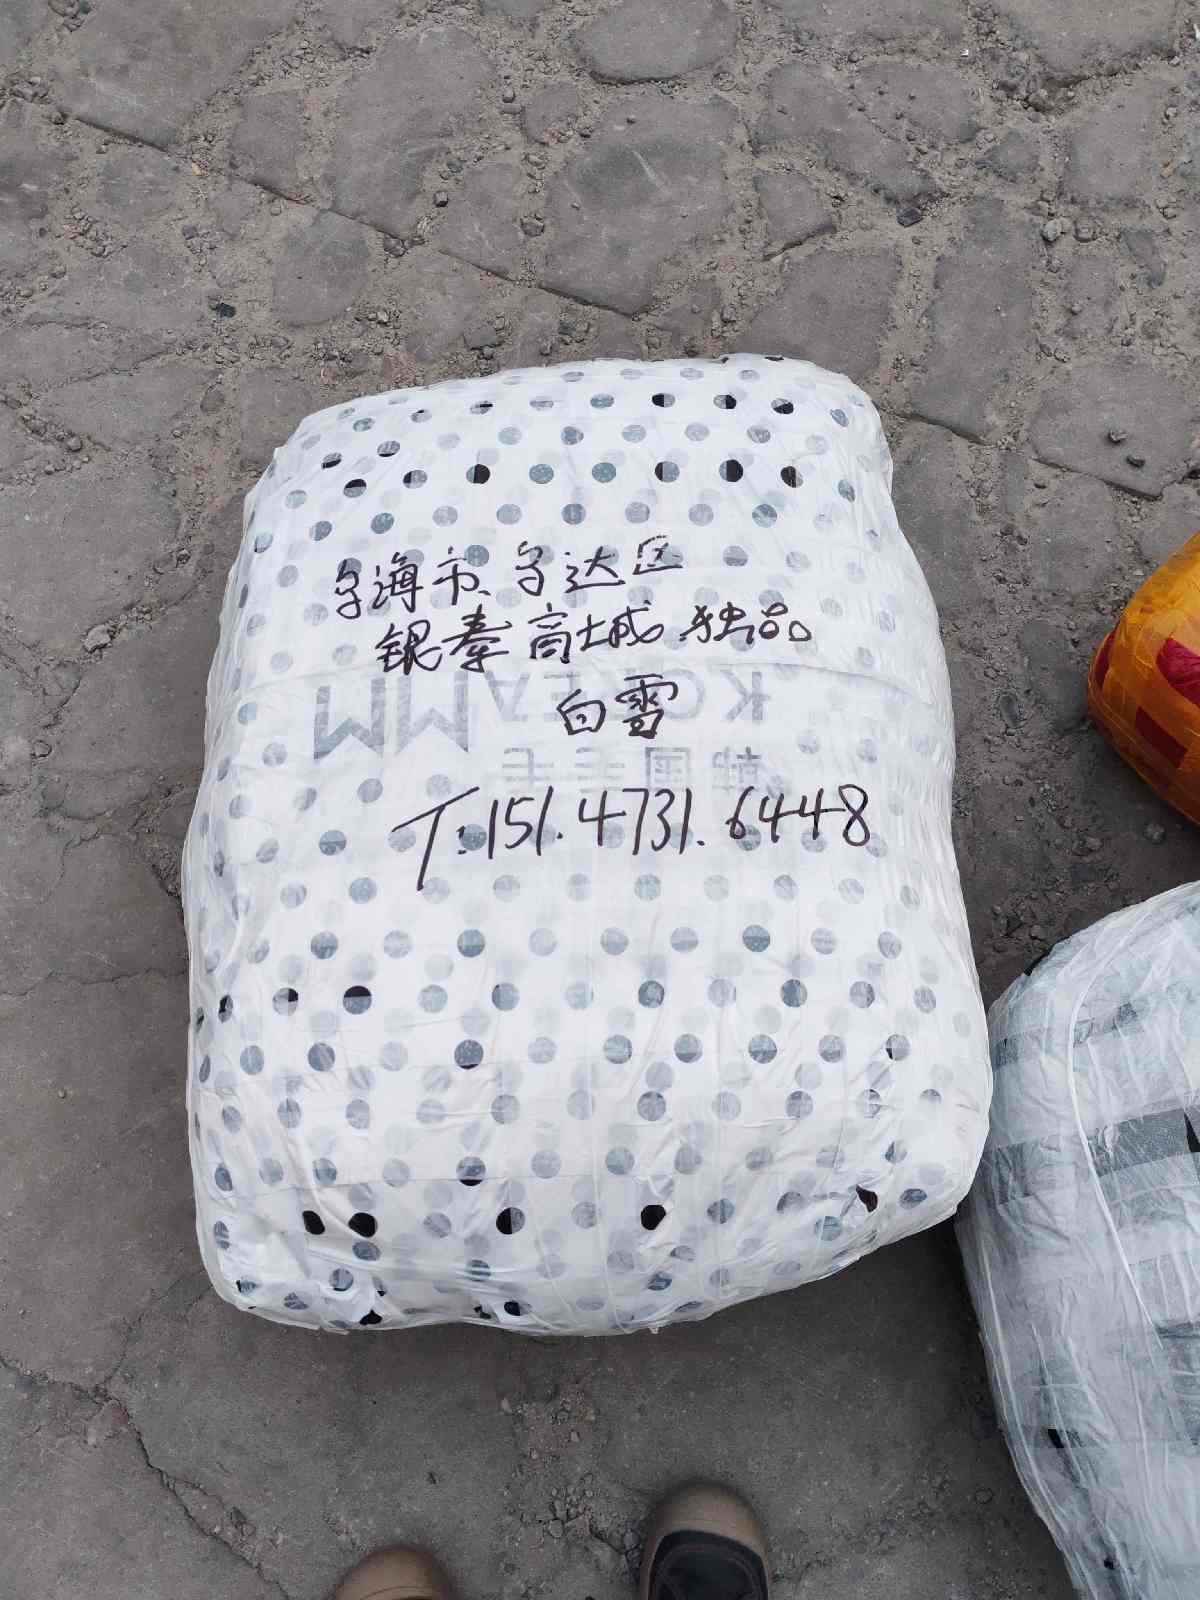 乌海市、乌达区
银泰商城 独品
白雪
T:151.4731.6448
KOREA MM
韩国毛毛